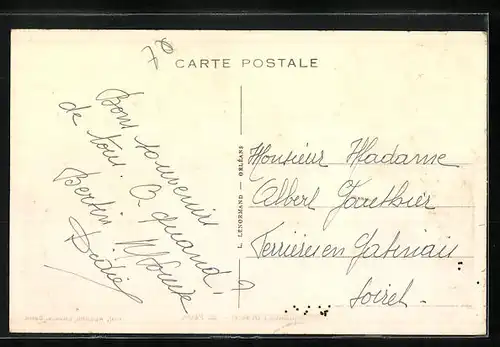 CARTE POSTALE
Bons souvenirs
de tous. A quand?
Bertin
Didier
L. LENORMAND — ORLÉANS
Monsieur Madame
Albert Gauthier
Ferrieres en Gatinais
Loiret.